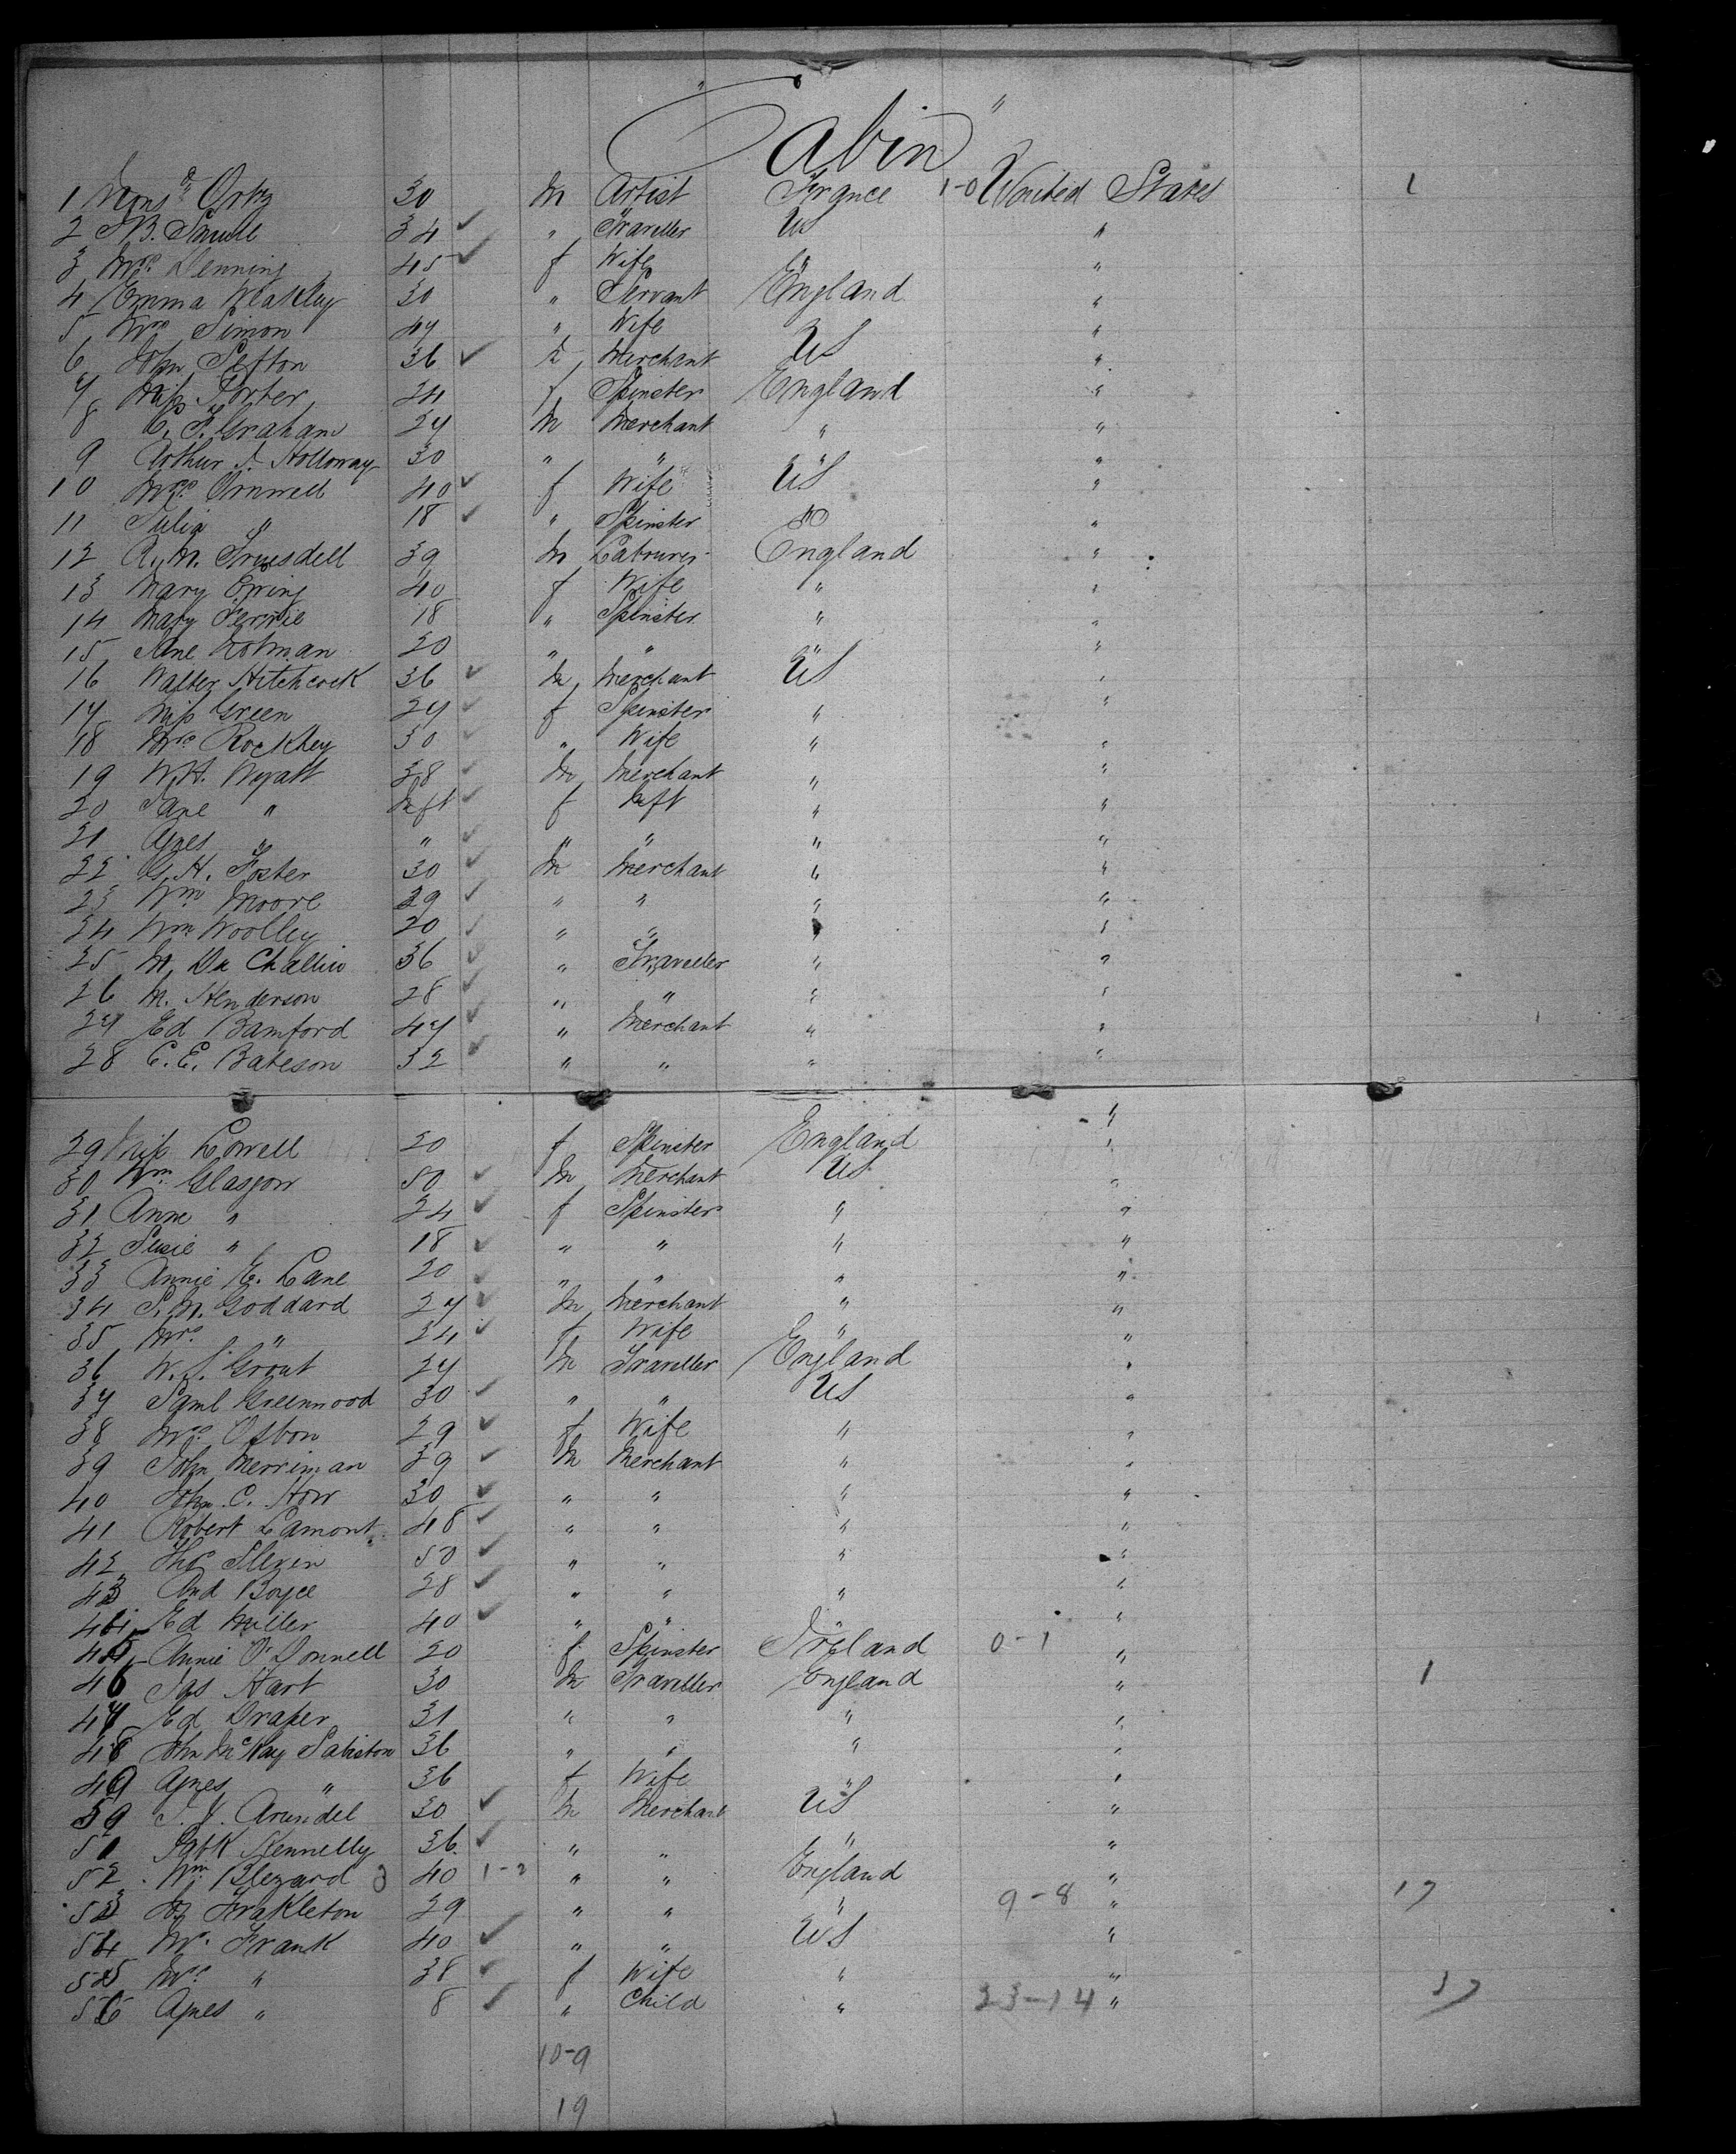 " Cabin "
1 Monsr Ortz 30 m Artist France 1-0 United States 1
2 34 ✓ " Traveller US "
3 Mrs Denning 45 ✓ f Wife " "
4 Emma Weakley 30 " Servant England "
5 Mrs Simon 47 " Wife " "
6 John Sefton 36 ✓ m Merchant US "
7 Miss Porter 24 f Spinster England "
8 C. F. Graham 27 m Merchant " "
9 Arthur Holloway 30 " " " "
10 Mrs 40 ✓ f Wife US "
11 Julia " 18 ✓ " Spinster DO "
12 A. M. Truesdell 39 m Labourer England "
13 Mary Ewing 40 f Wife " "
14 Mary Fernie 18 " Spinster " "
15 Jane 20 " " " "
16 Walter Hitchcock 36 ✓ m Merchant US "
17 Miss Green 27 ✓ f Spinster " "
18 Mrs Rockhey 30 ✓ " Wife " "
19 W.H. Wyatt 38 ✓ m Merchant " "
20 Jane " Inft ✓ f Inft " "
21 Agnes " " ✓ " " " "
22 G. H. Foster 30 ✓ m Merchant " "
23 Wm Moore 39 ✓ " " " "
24 Wm Woolley 20 ✓ " " " "
25 M. Du Challiu 36 ✓ " Traveller " "
26 M. Henderson 28 ✓ " " " "
27 Ed Bamford 47 ✓ " Merchant " "
28 C. E. Bateson 32 ✓ " " " "
29 Miss Lowell 20 f Spinster England "
30 Wm Glasgow 50 ✓ m Merchant US "
31 Anne " 24 ✓ f Spinster " "
32 Susie " 18 ✓ " " " "
33 Annie E. Lane 20 ✓ " " " "
34 S. M. Goddard 27 ✓ m Merchant " "
35 Mrs " 24 ✓ f Wife " "
36 W. S. Grout 27 m Traveller England "
37 Saml Greenwood 30 ✓ " " US "
38 Mrs Osbon 29 ✓ f Wife " "
39 John Merriman 39 ✓ m Merchant " "
40 John C. How 30 ✓ " " " "
41 Robert Lamont 48 ✓ " " " "
42 Thos Slevin 50 ✓ " " " "
43 And Boyce 28 ✓ " " " "
44 Ed Miller 40 ✓ " " " "
45 Annie O'Donnell 20 f Spinster Ireland 0-1 "
46 Jas Hart 30 m Traveller England " 1
47 Ed Draper 31 " " " "
48 John McKay Sabiston 36 " " " "
49 Agnes " 36 f Wife " "
50 T. J. Arundel 30 ✓ m Merchant US "
51 Patk Kennelly 36 ✓ " " " "
52 Wm Blezard 3 40 1-2 " " England "
53 Frakleton 29 " " " 9-8 " 17
54 Mr. Frank 40 ✓ " " US "
55 Mrs " 38 ✓ f Wife " "
56 Agnes " 8 ✓ " Child " 23-14 " 37
10-9
19